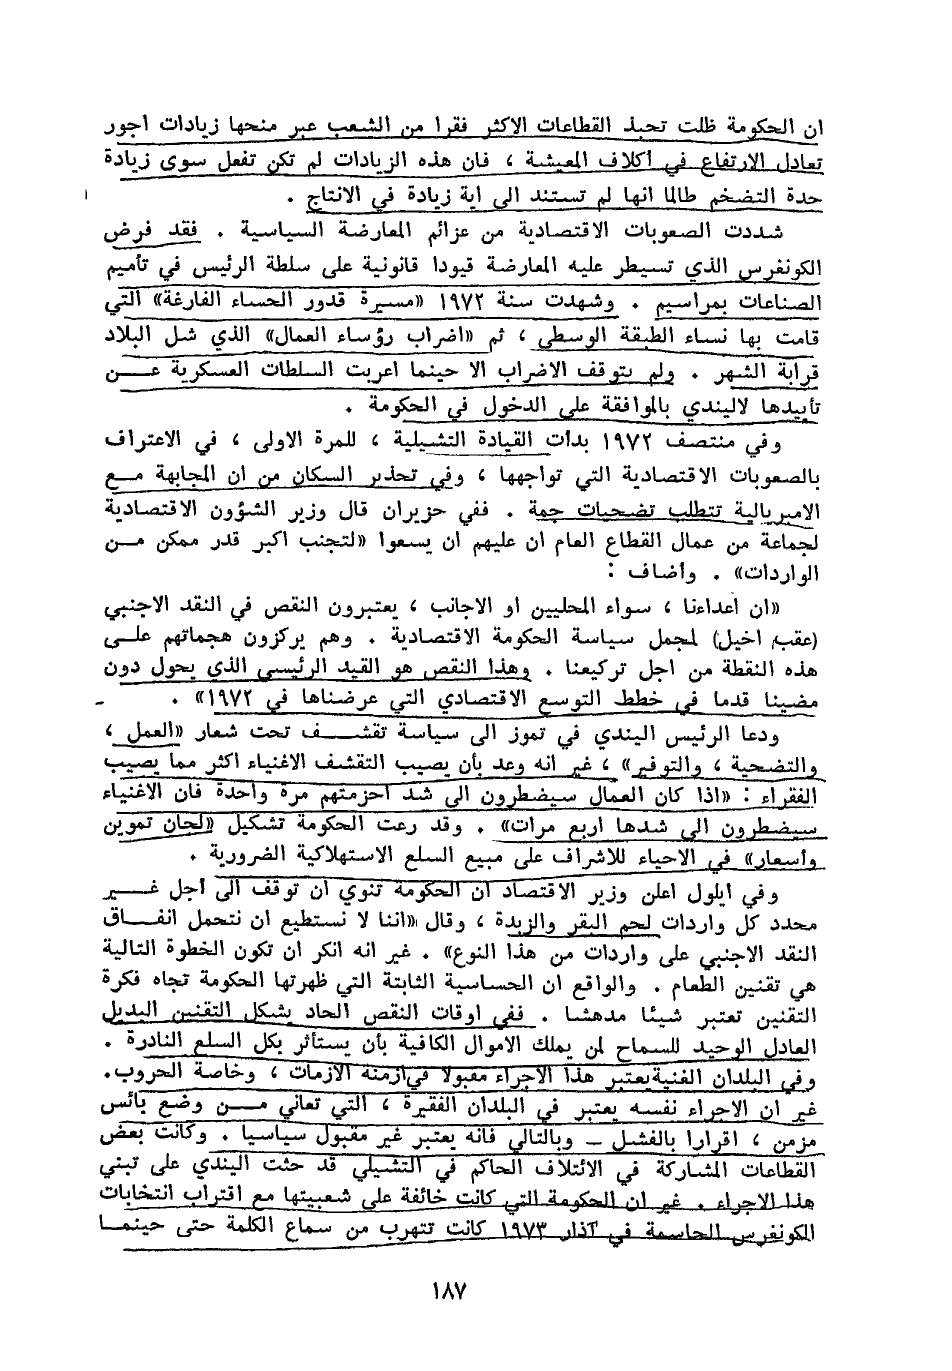 ان الحكومة ظلت تحبذ القطاعات الاكثر فقرا من الشعب عبر منحها زيادات اجور
تعادل الارتفاع في اكلاف المعيشة ، فان هذه الزيادات لم تكن تفعل سوى زيادة
حدة التضخم طالما انها لم تستند الى اية زيادة في الانتاج .
شددت الصعوبات الاقتصادية من عزائم المعارضة السياسية . فقد فرض
الكونغرس الذي تسيطر عليه المعارضة قيودا قانونية على سلطة الرئيس في تأميم
الصناعات بمراسيم . وشهدت سنة ١٩٧٢ «مسيرة قدور الحساء الفارغة» التي
قامت بها نساء الطبقة الوسطى ، ثم «اضراب رؤساء العمال» الذي شل البلاد
قرابة الشهر . ولم يتوقف الاضراب الا حينما اعربت السلطات العسكرية عــن
تأييدها لاليندي بالموافقة على الدخول في الحكومة .
وفي منتصف ١٩٧٢ بدات القيادة التشيلية ، للمرة الاولى ، في الاعتراف
بالصعوبات الاقتصادية التي تواجهها ، وفي تحذير السكان من ان المجابهة مــع
الامبريالية تتطلب تضحيات جمة . ففي حزيران قال وزير الشؤون الاقتصادية
لجماعة من عمال القطاع العام ان عليهم ان يسعوا «لتجنب اكبر قدر ممكن مــن
الواردات» . وأضاف :
«ان أعداءنا ، سواء المحليين او الاجانب ، يعتبرون النقص في النقد الاجنبي
(عقب اخيل) لمجمل سياسة الحكومة الاقتصادية . وهم يركزون هجماتهم علــى
هذه النقطة من اجل تركيعنا . وهذا النقص هو القيد الرئيسي الذي يحول دون
مضينا قدما في خطط التوسع الاقتصادي التي عرضناها في ١٩٧٢» .
ودعا الرئيس اليندي في تموز الى سياسة تقشــف تحت شعار «العمل ،
والتضحية ، والتوفير» ، غير انه وعد بأن يصيب التقشف الاغنياء اكثر مما يصيب
الفقراء : «اذا كان العمال سيضطرون الى شد احزمتهم مرة واحدة فان الاغنياء
سيضطرون الى شدها اربع مرات» . وقد رعت الحكومة تشكيل «لجان تموين
وأسعار» في الاحياء للاشراف على مبيع السلع الاستهلاكية الضرورية .
وفي ايلول اعلن وزير الاقتصاد ان الحكومة تنوي ان توقف الى أجل غــير
محدد كل واردات لحم البقر والزبدة ، وقال «اننا لا نستطيع ان نتحمل انفــاق
النقد الاجنبي على واردات من هذا النوع» . غير انه انكر ان تكون الخطوة التالية
هي تقنين الطعام . والواقع ان الحساسية الثابتة التي ظهرتها الحكومة تجاه فكرة
التقنين تعتبر شيئا مدهشا . ففي اوقات النقص الحاد يشكل التقنين البديل
العادل الوحيد للسماح لمن يملك الاموال الكافية بأن يستأثر بكل السلع النادرة .
وفي البلدان الغنية يعتبر هذا الاجراء مقبولا في ازمنة الازمات ، وخاصة الحروب.
غير ان الاجراء نفسه يعتبر في البلدان الفقيرة ، التي تعاني مــن وضع بائس
مزمن ، اقرارا بالفشل – وبالتالي فانه يعتبر غير مقبول سياسيا . وكانت بعض
القطاعات المشاركة في الائتلاف الحاكم في التشيلي قد حثت اليندي على تبني
هذا الاجراء . غير ان الحكومة التي كانت خائفة على شعبيتها مع اقتراب انتخابات
الكونغرس الحاسمة في آذار ١٩٧٣ كانت تتهرب من سماع الكلمة حتى حينمــا
١٨٧